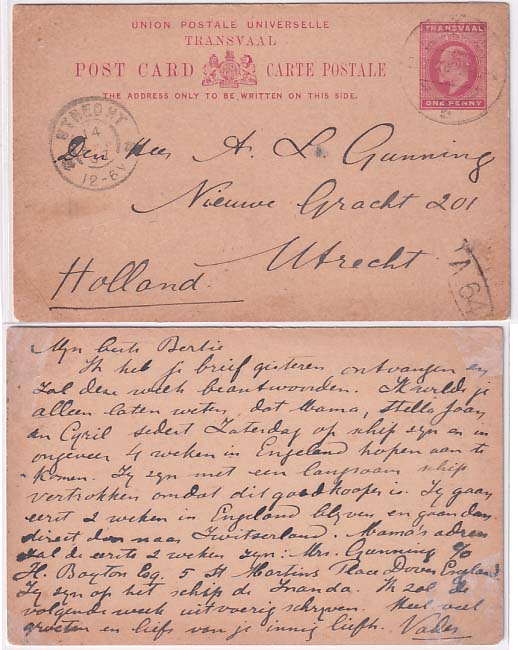 UNION POSTALE UNIVERSELLE
TRANSVAAL
POST CARD CARTE POSTALE
THE ADDRESS ONLY TO BE WRITTEN ON THIS SIDE.
TRANSVAAL
ONE PENNY
UTRECHT
14
12-6V
Den Heer A. L. Gunning
Nieuwe Gracht 201
Utrecht
Holland.
64
Myn beste Bertie
Ik heb je brief gisteren ontvangen en
zal deze week beantwoorden. Ik wilde je
alleen laten weten, dat Mama, Stella Joan
en Cyril sedert Zaterdag op schip zyn en in
ongeveer 4 weken in Engeland hopen aan te
komen. Zy zyn met een langzaam schip
vertrokken omdat dit goedkooper is. Zy gaan
eerst 2 weken in Engeland blyven en gaan dan
direct door naar Zwitserland. Mama's adres
zal de eerste 2 weken zyn: Mrs. Gunning c/o
H. Boyton Esq. 5 St Martins Place Dover England
Zy zyn op het schip de Inanda. Ik zal de
volgende week uitvoerig schryven. Heel veel
groeten en liefs van je innig liefh. Vader